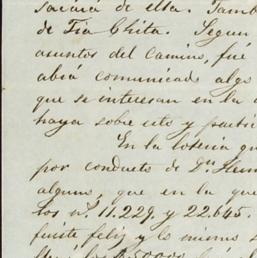 de ella. Tamb
de Tia Chita. Segun
asuntos del camino, fué
comunicado algo
que se interesan en la
haya sobre esto y practic
En la loteria qu
por conducto de D.n
alguno, que en la que
los nº. 11.229. y 22.645.
feliz y lo mismo